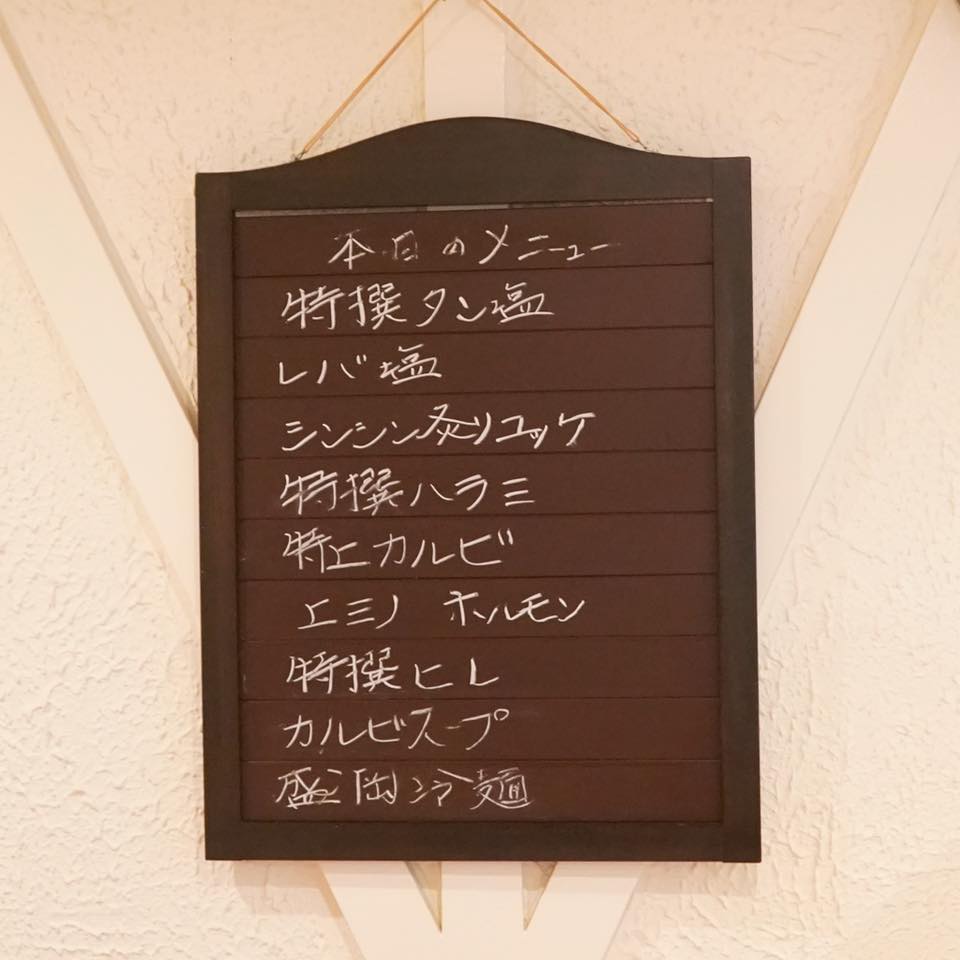 本日のメニュー
特撰タン塩
レバ塩
シンシン炙りユッケ
特撰ハラミ
特上カルビ
エミノ ホルモン
特撰ヒレ
カルビスープ
盛岡冷麺